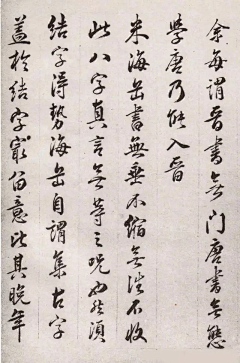 余每謂晉書無門唐書無態
學唐乃能入晉
米海岳書無垂不縮無往不收
此八字真言無等之咒也然須
結字得勢海岳自謂集古字
蓋於結字最留意此其晚年